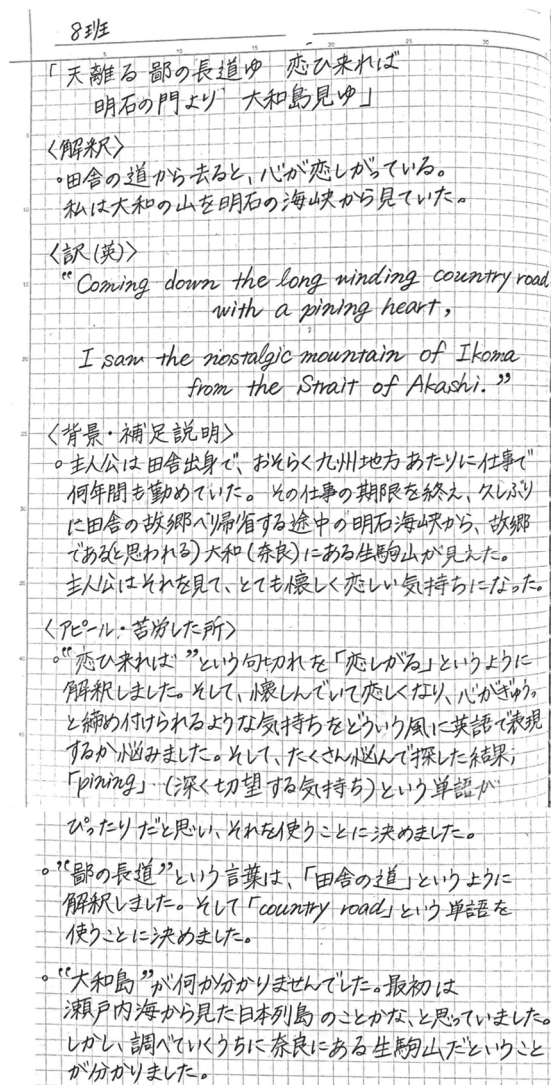 8班
「天離る 鄙の長道ゆ 恋ひ来れば
明石の門より 大和島見ゆ」
〈解釈〉
・田舎の道から去ると、心が恋しがっている。
私は大和の山を明石の海峡から見ていた。
〈訳(英)〉
"Coming down the long winding country road
with a pining heart,
I saw the nostalgic mountain of Ikoma
from the Strait of Akashi."
〈背景・補足説明〉
・主人公は田舎出身で、おそらく九州地方あたりに仕事で
何年間も勤めていた。その仕事の期限を終え、久しぶり
に田舎の故郷へ帰省する途中の明石海峡から、故郷
である(と思われる)大和(奈良)にある生駒山が見えた。
主人公はそれを見て、とても懐しく恋しい気持ちになった。
〈アピール・苦労した所〉
・"恋ひ来れば"という句切れを「恋しがる」というように
解釈しました。そして、懐しんでいて恋しくなり、心がぎゅう。
と締め付けられるような気持ちをどういう風に英語で表現
するか悩みました。そして、たくさん悩んで探した結果、
「pining」(深く切望する気持ち)という単語が
ぴったりだと思い、それを使うことに決めました。
・"鄙の長道"という言葉は、「田舎の道」というように
解釈しました。そして「country road」という単語を
使うことに決めました。
・"大和島"が何か分かりませんでした。最初は
瀬戸内海から見た日本列島のことかな、と思っていました。
しかし、調べていくうちに奈良にある生駒山だということ
が分かりました。